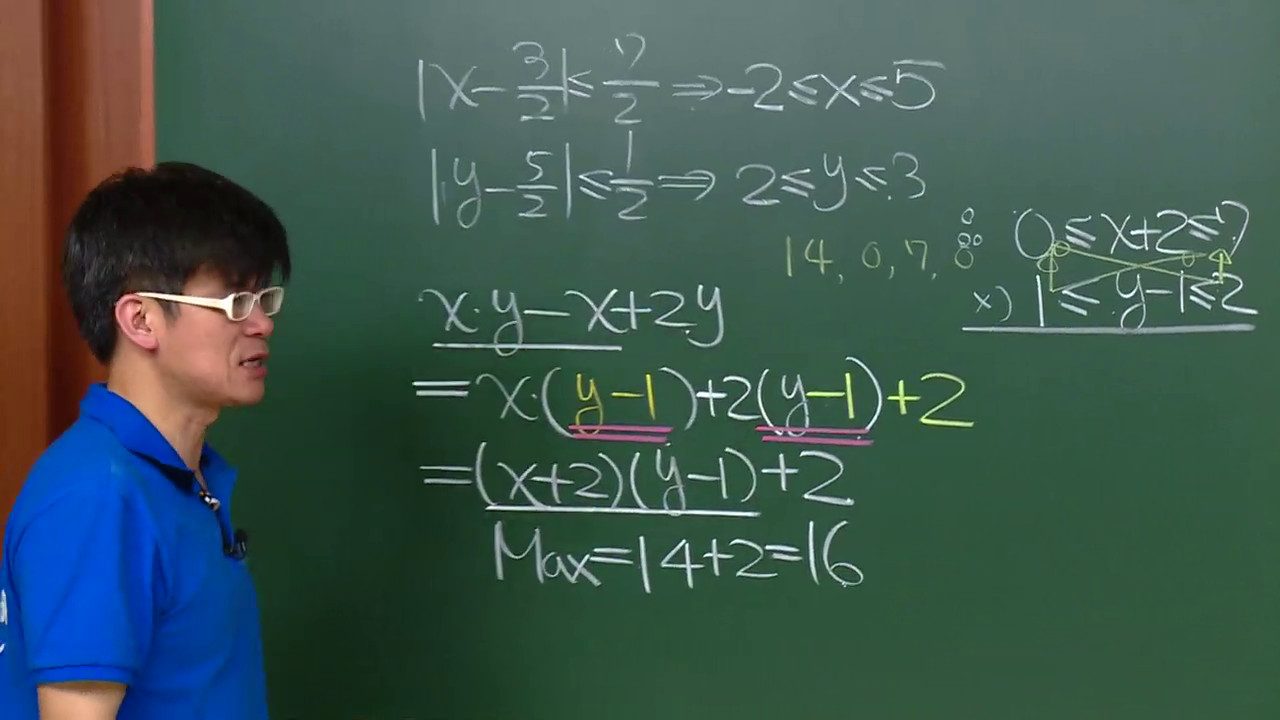 |x-3/2|≤7/2 ⇒ -2≤x≤5
|y-5/2|≤1/2 ⇒ 2≤y≤3
14, 0, 7, 0
0≤x+2≤7
x) 1≤y-1≤2
x·y-x+2y
=x·(y-1)+2(y-1)+2
=(x+2)(y-1)+2
Max=14+2=16